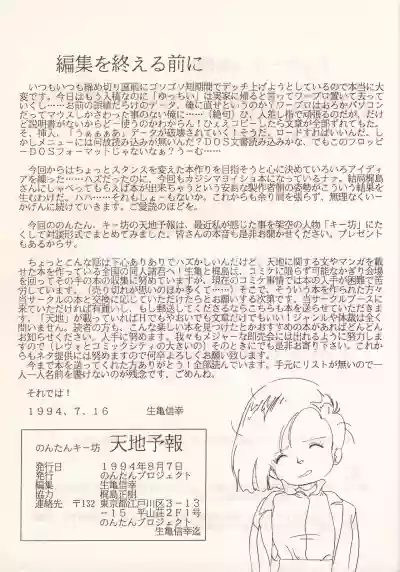 編集を終える前に
いつもいつも締め切り直前にゴソゴソ短期間でデッチ上げようとしているので本当に大
変です。今日はもう入稿なのに「ゆっちい」は実家に帰ると言ってワープロ置いて去って
いくし……お前の誤植だらけのデータ。俺に直せというのか！ワープロはおろかパソコン
だってマウスしかさわった事のない俺に……（絶句）ひ、人差し指で頑張るのだが、だけ
ど説明書がないからどー使うのかわからん！ひぇぇコピーしたら文章が全部ずれてもた。
そ、挿入。「うぁぁぁあ」データが破壊されていく！そうだ。ロードすればいいんだ。し
かしメニューには何故読み込みが無いんだ？DOS文書読み込みかな、でもこのフロッピ
ーDOSフォーマットじゃないなぁ？うーむ……
今回からはちょっとスタンスを変えた本作りを目指そうと心に決めていろいろアイディ
アを練った……ハズだったのに、今回もカジシマイッシュ本になっているナァ。結局梶島
さんにしゃべってもらえば本が出来ちゃうという安直な製作者側の姿勢がこういう結果
を生むわけだ。ハハ…それもしょーもないか。これからも余り肩を張らず、無理なくいー
かげんに続けていきます。ご愛読のほどを。
今回ののんたん、キー坊の天地予報は、最近私が感じた事を架空の人物「キー坊」にた
くして対談形式でまとめてみました。皆さんの本音も是非お聞かせください。プレゼント
もあるからサ。
ちょっとこんな話は下心ありありでハズかしいんだけど、天地に関する文やマンガを載
せた本を作っている全国の同人諸君へ！生亀と梶島は、コミケに限らず可能なかぎり会場
を回ってその手の本の収集に努めていますが、現在のコミケ事情では本の入手が困難で苦
労しています。（売り切れが多い。限定が多いなど）そこで、そういう本を作られた方々、
当サークルの本と交換に応じていただけたらとお願いする次第です。当サークルブースに
来ていただければ有難いし、もし郵送してくださるならこちらも本を送らせていただきま
す。「天地」が載っていればHでもやおいでも文章だけでもいい！ジャンルや体裁は全く
問いません。読者の方も、こんな楽しい本を見つけたとかおすすめの本があればどんどん
お知らせください。入手に努めます。我々もメジャーな即売会には出られるように努力しま
すので（レヴォとコミックシティの大きいの）そのときにでも是非お寄り下さい。これか
らもネタ提供には努めますので何卒よろしくお願い致します。
今まで本を送ってくれた方ありがとう！全部読んでいます。手元にリストが無いので一
人一人名前を書けないのが残念です、ごめんね。
それでは！
1994、7、16　生亀信幸
のんたんキー坊　天地予報
発行日　1994年8月7日
発行　のんたんプロジェクト
編集　生亀信幸
協力　梶島正樹
連絡先　〒132　東京都江戸川区3－13
－15　平山荘2F1号
のんたんプロジェクト
生亀信幸迄